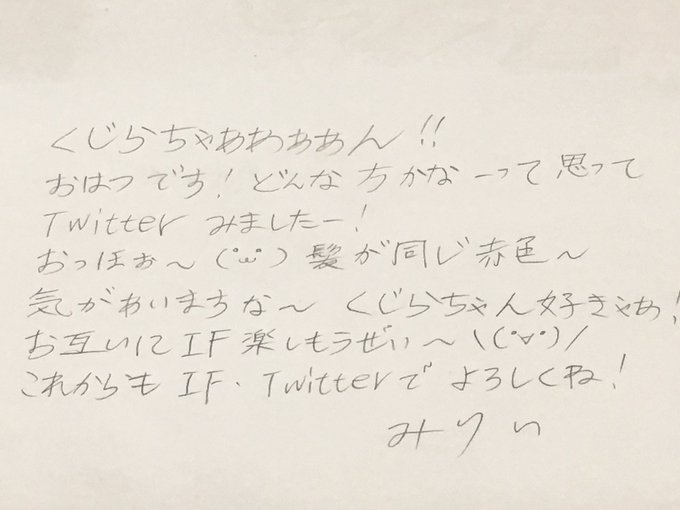 くじらちゃああぁあん!!
おはつです!どんな方かなーって思って
Twitter みましたー!
おっほぉ〜(°ω°)髪が同じ赤色〜
気があいまちな〜 くじらちゃん好きやあ!
お互いにIF楽しもうぜぃ〜\(°∀°)/
これからもIF・Twitterでよろしくね!
みりぃ